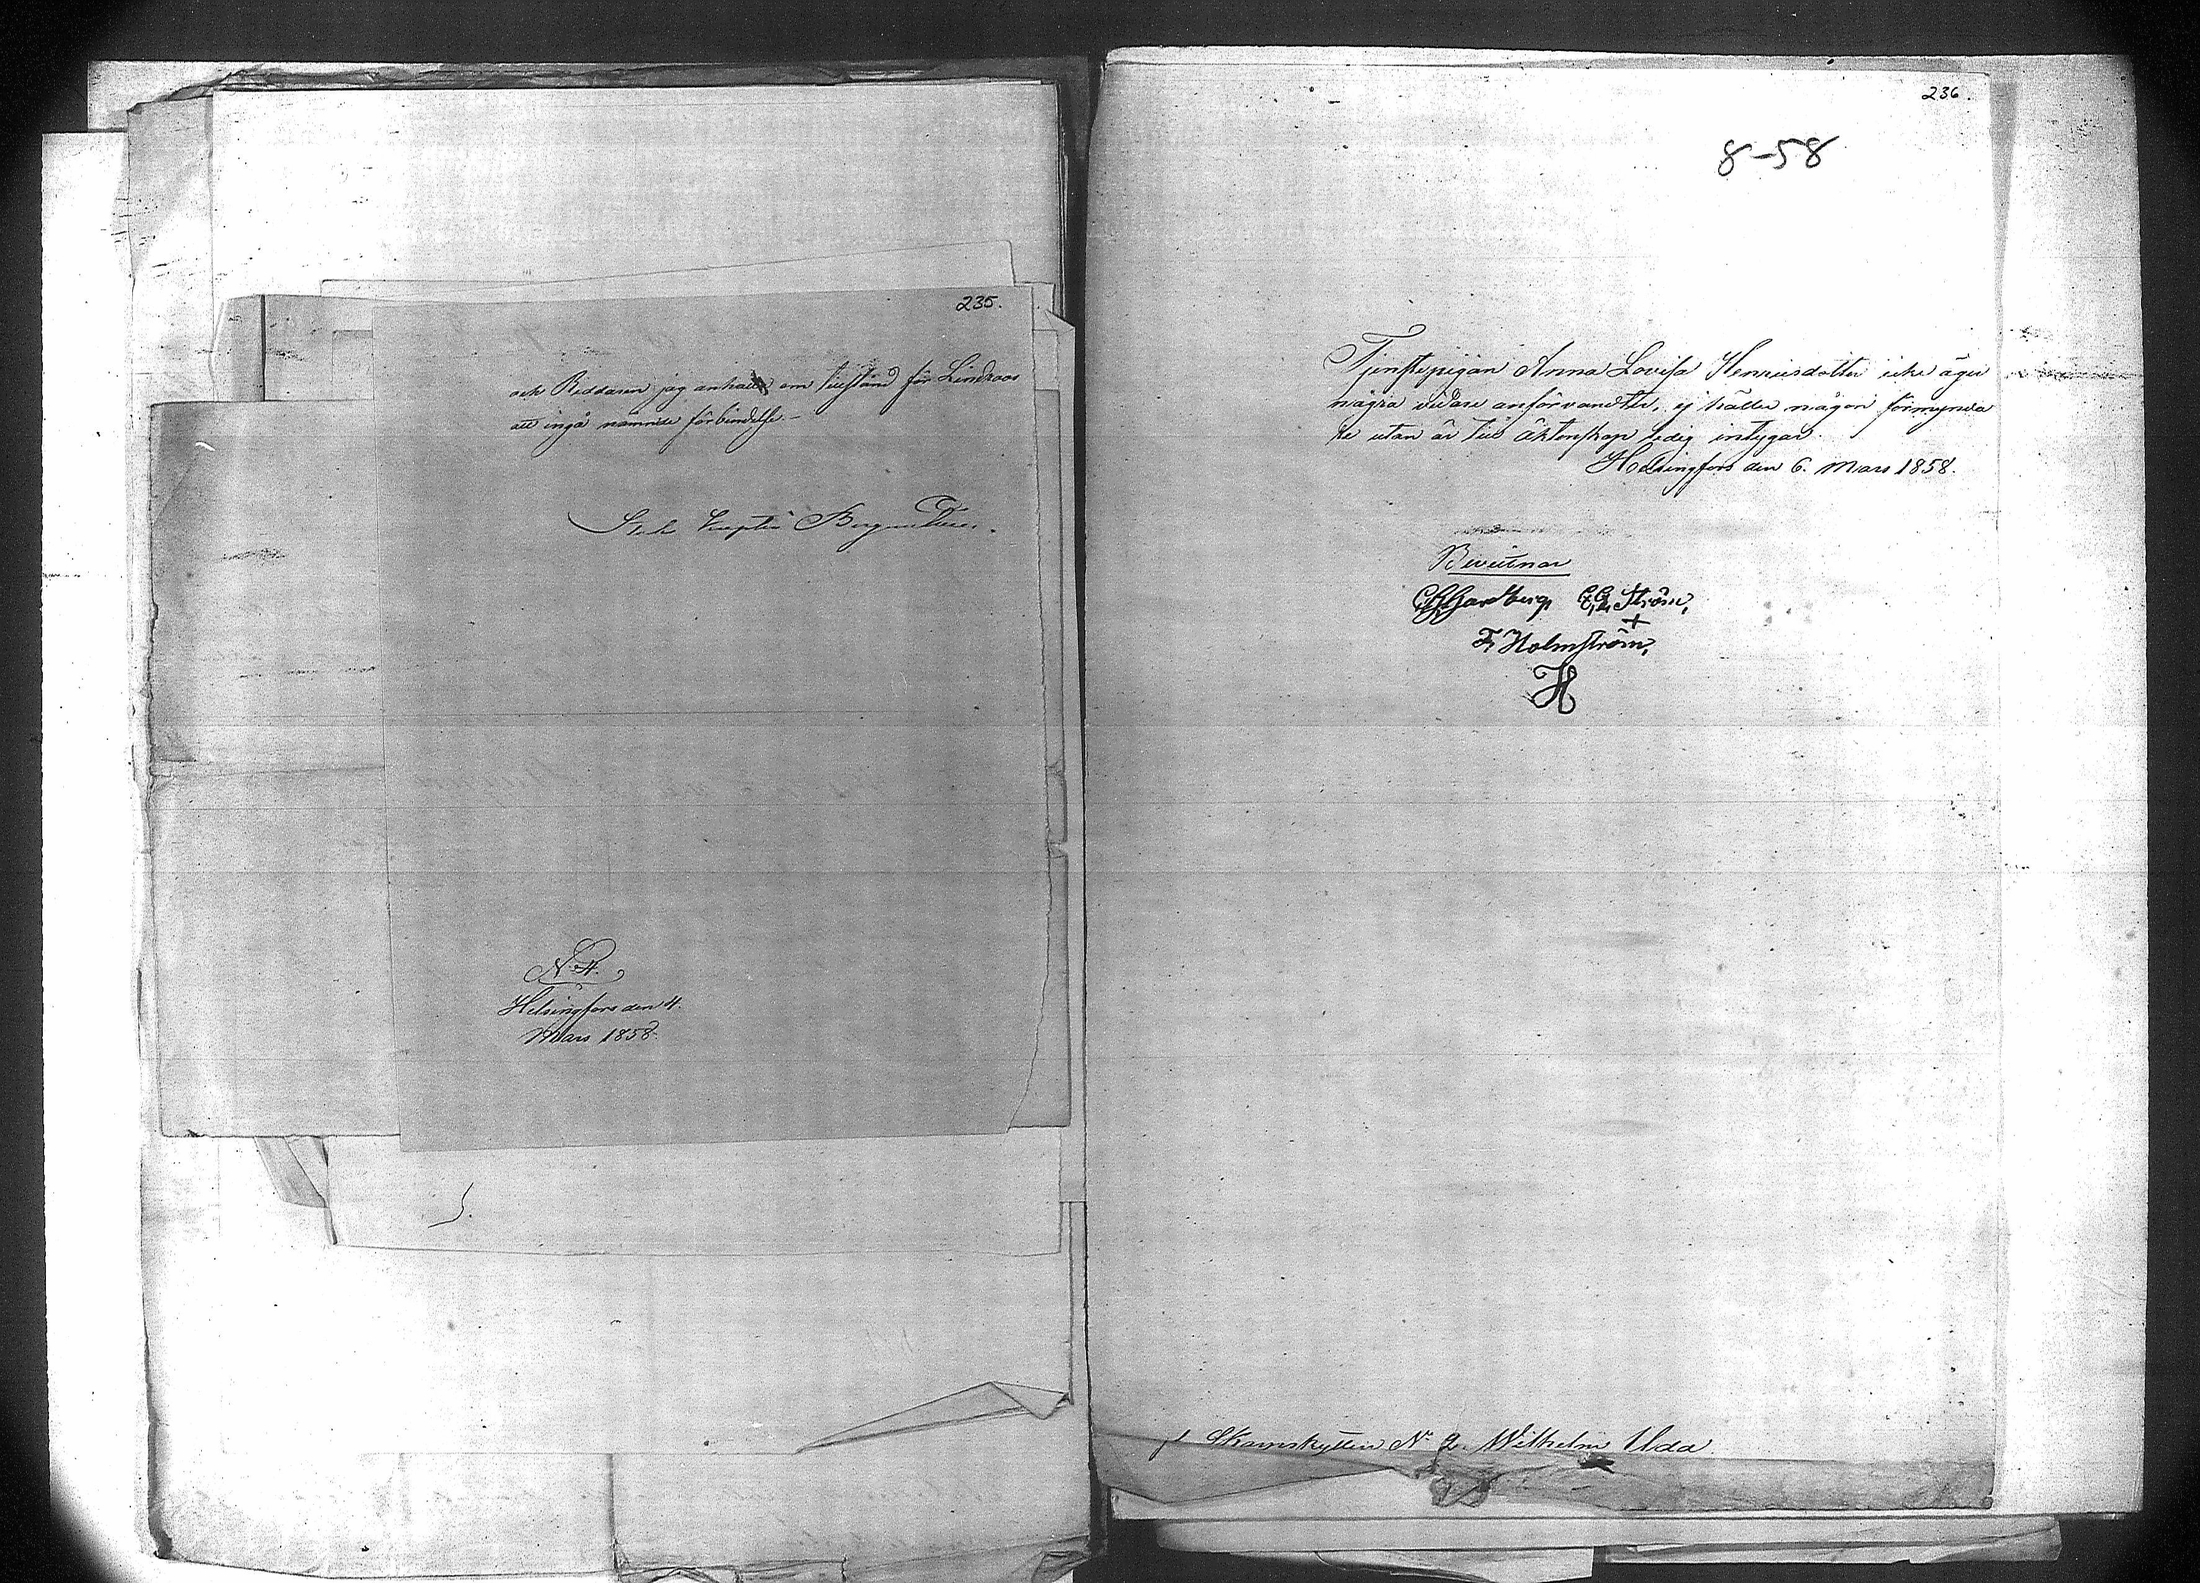 235.
och Reddaren jag anhåller om tillstånd för Lindroos
att ingå nämnde förbindelse.
Stabs Kapten
N:o 4.
Helsingfors den 4.
Mars 1858.
236.
8-58
Tjenstepigan Anna Lovisa Henricsdotter icke äger
några vidare anförvandter, ej håller någon förmynda
re utan är till äktenskap ledig intygar.
Helsingfors den 6. Mars 1858.
Bevittnar
Ström,
F, Holmström,
H
Skarpskytten N: 2. Wilhelm Uda